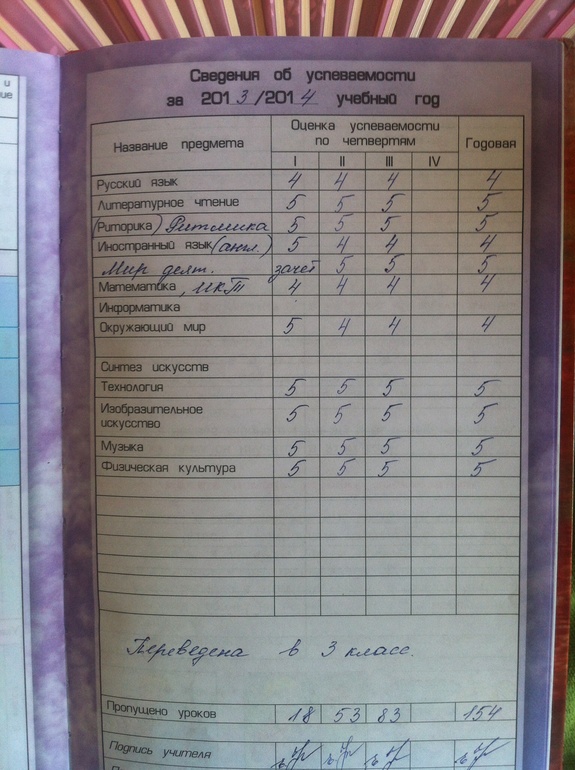 и
ние
Сведения об успеваемости
за 2013/2014 учебный год
Название предмета Оценка успеваемости по четвертям Годовая
I II III IV
Русский язык 4 4 4 4
Литературное чтение 5 5 5 5
(Риторика) Ритмика 5 5 5 5
Иностранный язык (англ.) 5 4 4 4
Мир деят. зачёт 5 5 5
Математика, ИКТ 4 4 4 4
Информатика
Окружающий мир 5 4 4 4
Синтез искусств
Технология 5 5 5 5
Изобразительное
искусство 5 5 5 5
Музыка 5 5 5 5
Физическая культура 5 5 5 5
Переведена в 3 класс.
Пропущено уроков 18 53 83 154
Подпись учителя